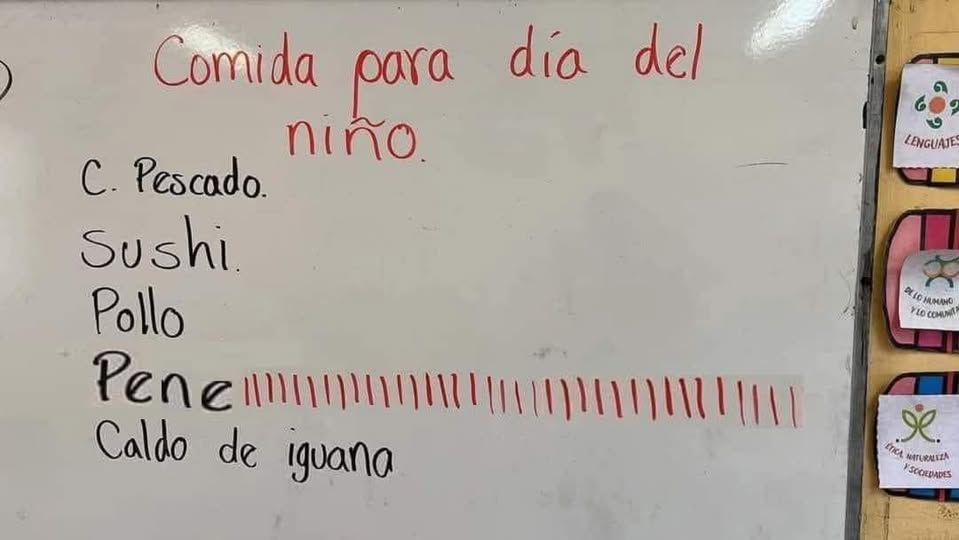 Comida para día del
niño.
C. Pescado.
Sushi.
Pollo
Pene ||||||||||||||||||||||||||||||||||
Caldo de iguana
LENGUAJES
DE LO HUMANO
Y LO COMUNIT
ÉTICA, NATURALEZA
Y SOCIEDADES